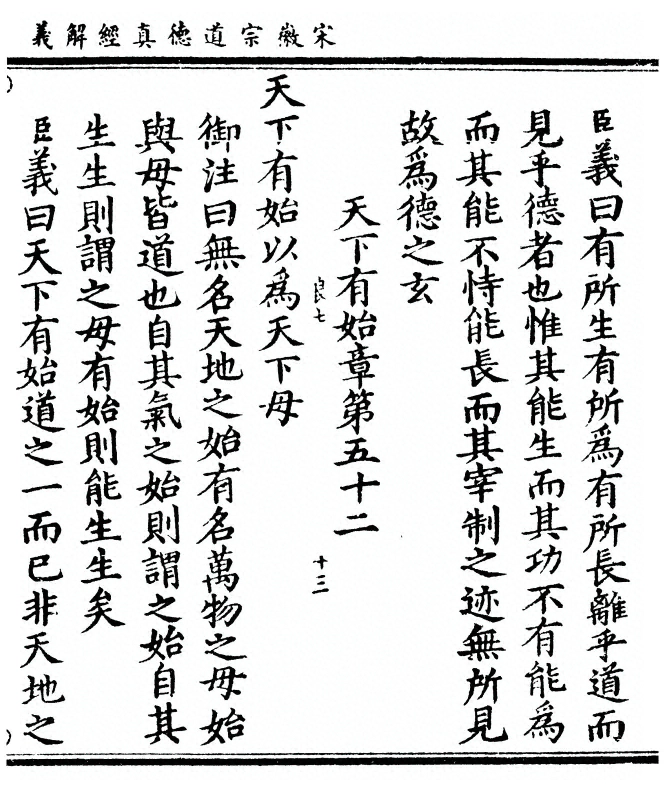 宋徽宗道德真經解義
臣義曰有所生有所爲有所長離乎道而
見乎德者也惟其能生而其功不有能爲
而其能不恃能長而其宰制之迹無所見
故爲德之玄
天下有始章第五十二
良七
十三
天下有始以爲天下母
御注曰無名天地之始有名萬物之母始
與母皆道也自其氣之始則謂之始自其
生生則謂之母有始則能生生矣
臣義曰天下有始道之一而已非天地之